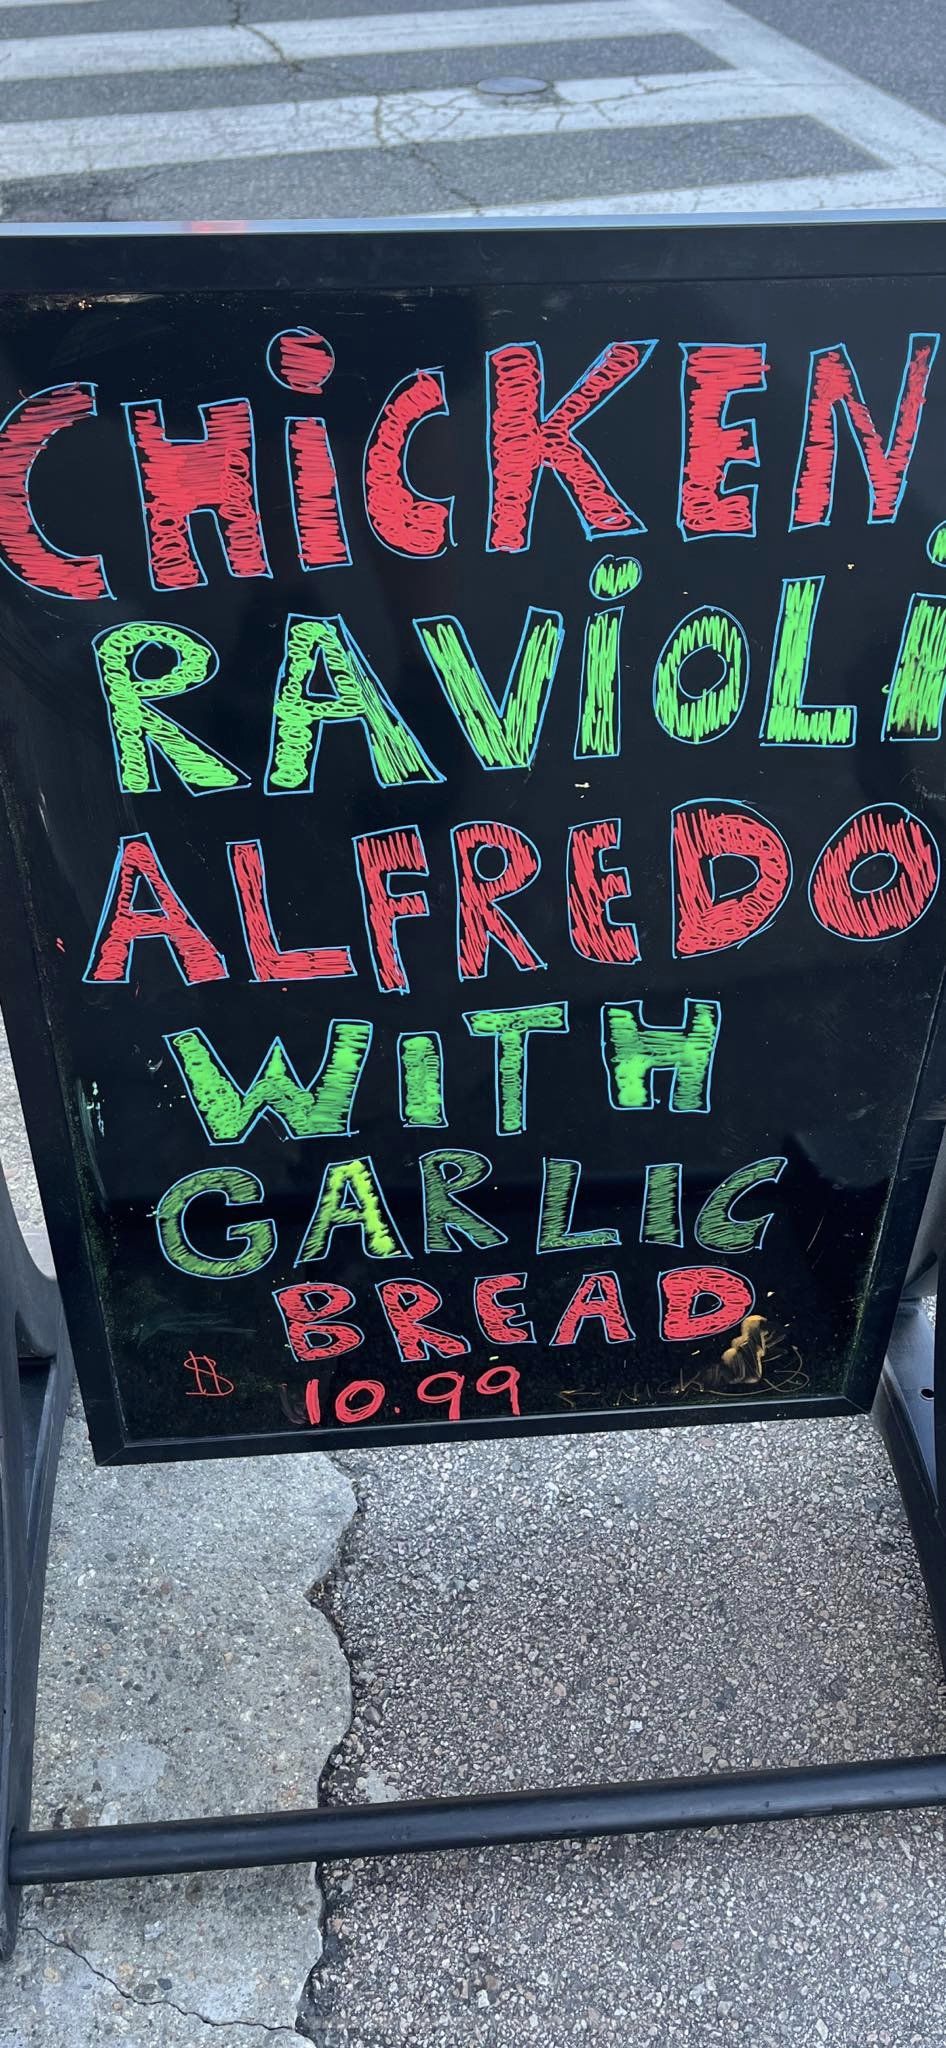 CHiCKEN
RAViOLi
ALFREDO
WITH
GARLIC
BREAD
$ 10.99